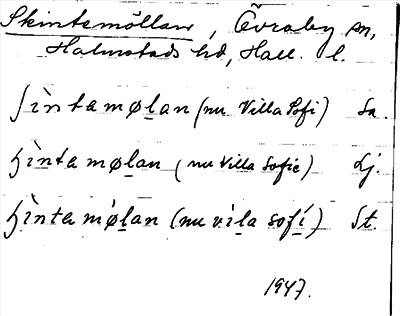 Skintamöllan, Övraby sn,
Halmstads hd, Hall. l.
ʃìntamøḷan (nu Villa Sofi) Sa.
ɧìnta møḷan (nu Villa Sofie) Lj.
ɧìnta møḷan (nu vila sofí) St.
1947.